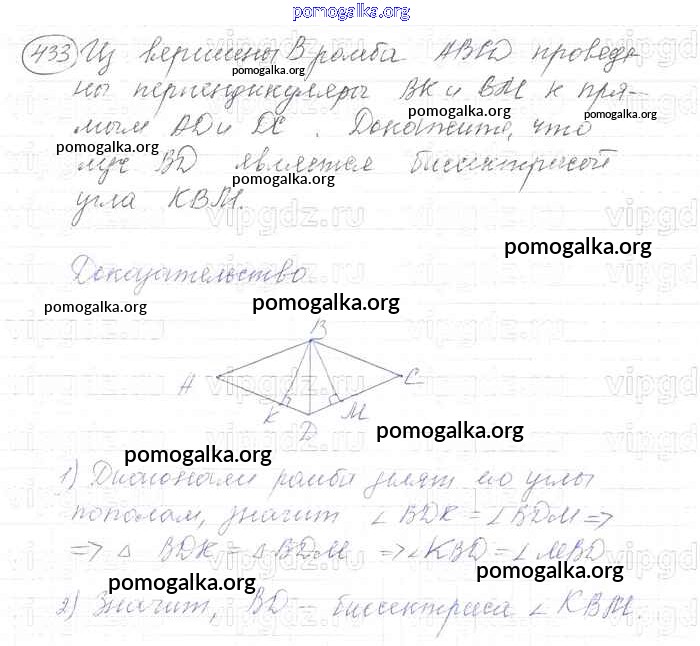 pomogalka.org
433 Из вершины В ромба ABCD проведе-
pomogalka.org
ны перпендикуляры ВК и ВМ к пря-
pomogalka.org pomogalka.org
мым AD и DC. Докажите, что
pomogalka.org
луч BD является биссектрисой
pomogalka.org
угла КВМ.
vipgdz.ru vipgdz.ru
pomogalka.org
Доказательство
pomogalka.org pomogalka.org
vipgdz.ru vipgdz.ru
B
A C
K M
D
pomogalka.org
pomogalka.org
1) Диагонали ромба делят его углы
пополам, значит ∠BDK = ∠BDM ⇒
⇒ △ BDK = △ BDM ⇒ ∠KBD = ∠MBD
pomogalka.org pomogalka.org
2) Значит, BD – биссектриса ∠ KBM.